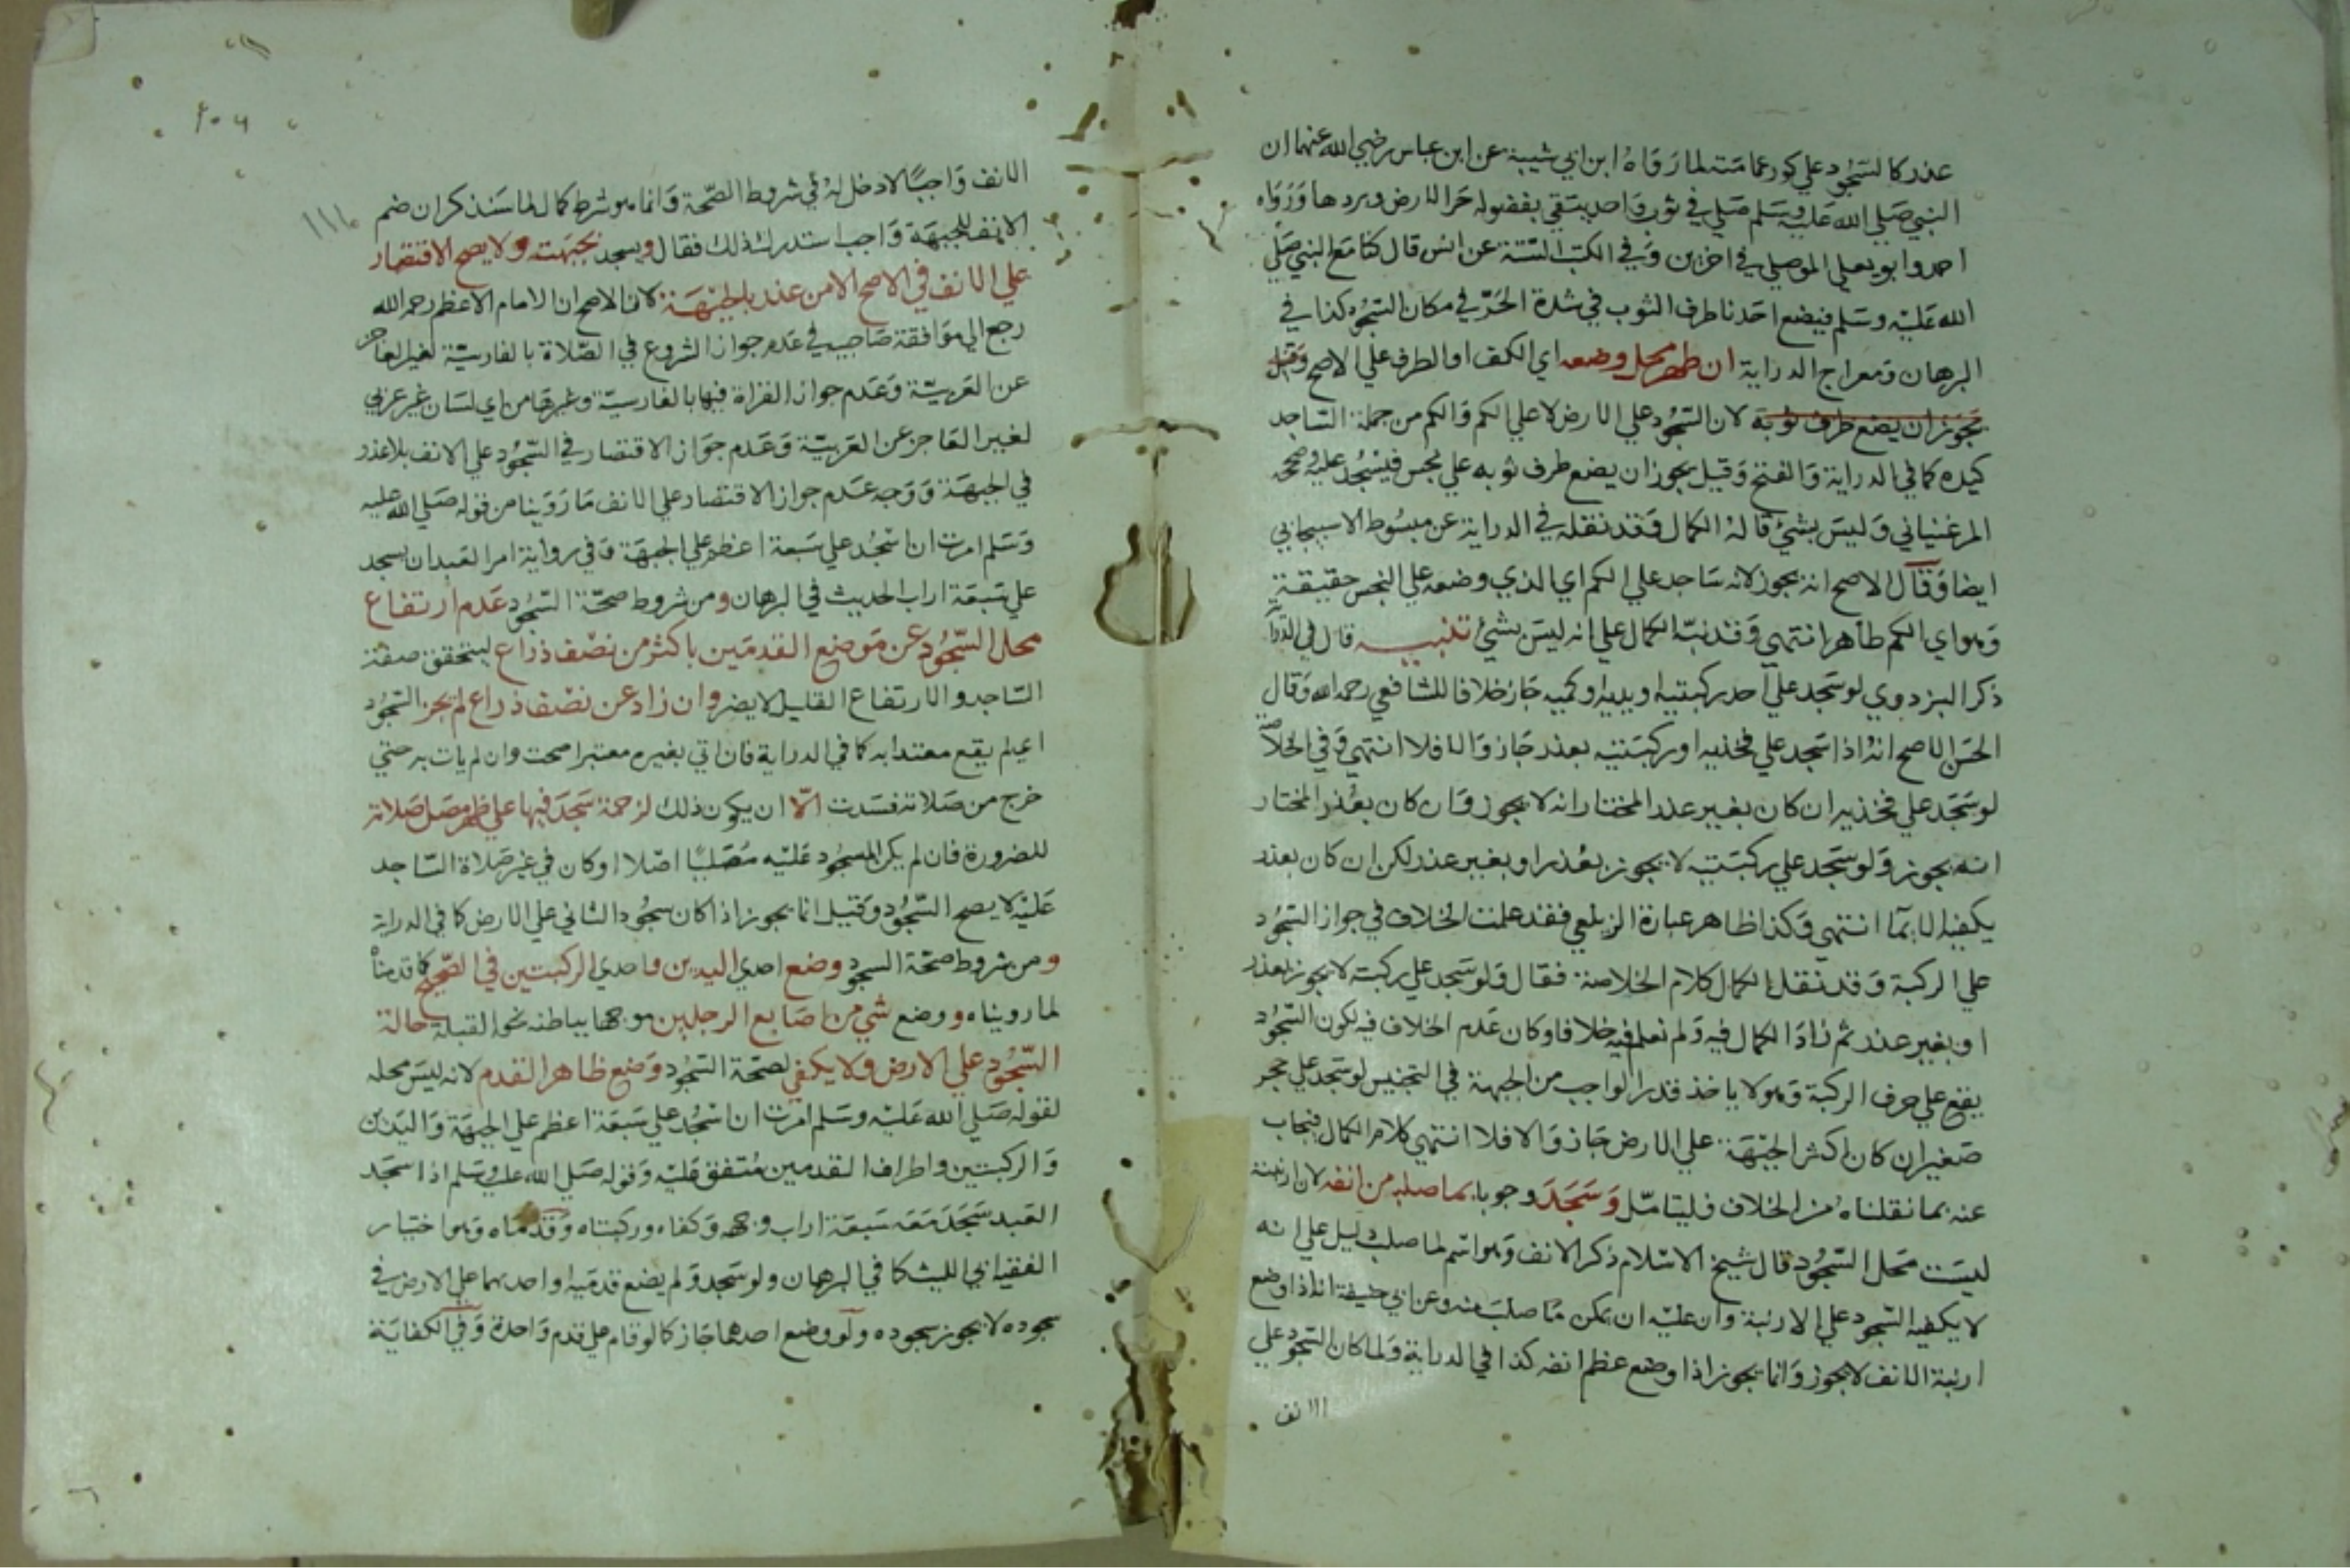 عذر كالسجود علي كور عمامته لما رواه ابن ابي شيبة عن ابن عباس رضي الله عنهما ان
النبي صلي الله عليه وسلم صلي في ثوب واحد يتقي بفضوله حر الارض وبردها ورواه
احمد وابو يعلي الموصلي في اخرين وفي الكتب الستة عن انس قال كنا مع النبي صلي
الله عليه وسلم فيضع احدنا طرف الثوب في شدة الحر في مكان السجود كذا في
البرهان ومعراج الدراية ان طهر محل وضعه اي الكف او الطرف علي الاصح وقيل
يجوز ان يضع طرف ثوبه لان السجود علي الارض لا علي الكم والكم من جملة الساجد
كيده كما في الدراية والفتح وقيل يجوز ان يضع طرف ثوبه علي نجس فيسجد عليه وصححه
المرغيناني وليس بشئ قاله الكمال وقد نقله في الدراية عن مبسوط الاسبيجابي
ايضا وقال الاصح انه يجوز لانه ساجد علي الكم اي الذي وضعه علي النجس حقيقة
وهو اي الكم طاهر انتهي وقد نبه الكمال علي انه ليس بشئ تنبيه قال في الدراية
ذكر البزدوي لو سجد علي احد ركبتيه او يديه او كميه جاز خلافا للشافعي رحمه الله وقال
الحسن الاصح انه اذا سجد علي فخذيه او ركبتيه بعذر جاز والا فلا انتهي وفي الخلاصة
لو سجد علي فخذيه ان كان بغير عذر المختار انه لا يجوز وان كان بعذر المختار
انه يجوز ولو سجد علي ركبتيه لا يجوز بعذر او بغير عذر لكن ان كان بعذر
يكفيه الايما انتهي وكذا ظاهر عبارة الزيلعي فقد علمت الخلاف في جواز السجود
علي الركبة وقد نقل الكمال كلام الخلاصة فقال ولو سجد علي ركبته لا يجوز بعذر
او بغير عذر ثم زاد الكمال فيه ولم نعلم فيه خلافا وكان عدم الخلاف فيه لكون السجود
يقع علي حرف الركبة وهو لا ياخذ قدر الواجب من الجبهة في التجنيس لو سجد علي حجر
صغير ان كان اكثر الجبهة علي الارض جاز والا فلا انتهي كلام الكمال فيجاب
عنه بما نقلناه من الخلاف فليتامل وسجد وجوبا بما صلب من انفه لان ارنبته
ليست محل السجود قال شيخ الاسلام ذكر الانف وهو اسم لما صلب دليل علي انه
لا يكفيه السجود علي الارنبة وان عليه ان يمكن ما صلب منه وعن ابي حنيفة انه اذا وضع
ارنبة الانف لا يجوز وانما يجوز اذا وضع عظم انفه كذا في الدراية ولما كان السجود علي
الانف
٢٠٦
١١٤
الانف واجبا لا دخل له في شروط الصحة وانما هو شرط كمال لما سنذكر ان ضم
الانف للجبهة واجب استدرك ذلك فقال ويسجد بجبهته ولا يصح الاقتصار
علي الانف في الاصح الا من عذر بالجبهة لان الاصح ان الامام الاعظم رحمه الله
رجع الي موافقة صاحبيه في عدم جواز الشروع في الصلاة بالفارسية لغير العاجز
عن العربية وعدم جواز القراة فيها بالفارسية وغيرها من اي لسان غير عربي
لغير العاجز عن العربية وعدم جواز الاقتصار في السجود علي الانف بلا عذر
في الجبهة ووجه عدم جواز الاقتصار علي الانف ما روينا من قوله صلي الله عليه
وسلم امرت ان اسجد علي سبعة اعظم علي الجبهة وفي رواية امر العبد ان يسجد
علي سبعة اراب الحديث في البرهان ومن شروط صحة السجود عدم ارتفاع
محل السجود عن موضع القدمين باكثر من نصف ذراع ليتحقق صفة
الساجد والارتفاع القليل لا يضر وان زاد عن نصف ذراع لم يجز السجود
اي لم يقع معتدا به كما في الدراية فان اتي بغيره معتبرا صحت وان لم يات به حتي
خرج من صلاته فسدت الا ان يكون ذلك لزحمة سجد فيها علي ظهر مصل صلاته
للضرورة فان لم يكن المسجود عليه مصليا اصلا او كان في غير صلاة الساجد
عليه لا يصح السجود وقيل انما يجوز اذا كان سجود الثاني علي الارض كما في الدراية
ومن شروط صحة السجود وضع احدي اليدين واحدي الركبتين في الصحيح كما قدمناه
لما رويناه ووضع شي من اصابع الرجلين موجها بباطنه نحو القبلة حالة
السجود علي الارض ولا يكفي لصحة السجود وضع ظاهر القدم لانه ليس محله
لقوله صلي الله عليه وسلم امرت ان اسجد علي سبعة اعظم علي الجبهة واليدين
والركبتين واطراف القدمين متفق عليه وقوله صلي الله عليه وسلم اذا سجد
العبد سجد معه سبعة اراب وجهه وكفاه وركبتاه وقدماه وهو اختيار
الفقيه ابي الليث كما في البرهان ولو سجد ولم يضع قدميه او احديهما علي الارض في
سجوده لا يجوز سجوده ولو وضع احدهما جاز كما لو قام علي قدم واحدة وفي الكفاية